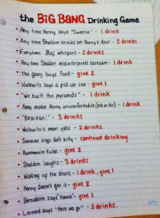 the BIG BANG Drinking Game
• Any time Penny says "Sweetie" - 1 drink
• Any time Sheldon knocks on Penny's door - 2 drinks
• Everytime Raj whispers - 2 drinks
• Any time Sheldon misinterprets sarcasm - 1 drink
• The gang buys food - give 2
• Wolowitz says a pick up line - give 1
• "We built the pyramids" - 1 drink
• Amy makes Penny uncomfortable - 1 drink
• "Bazinga!" - 3 drinks
• Wolowitz's mom yells - 2 drinks
• Someone says soft kitty - continue drinking
• Roommate Rules - give 2
• Sheldon laughs - 3 drinks
• Walking up the stairs - 1 drink, give 1
• Penny doesn't get it - give 2
• Someone says "Nerds" - give 1
• Leonard says "Here we go" - 2 drinks.